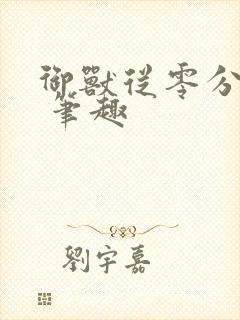 御獸從零分
筆趣
劉宇嘉